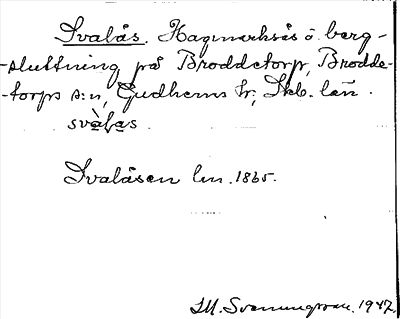 Svalås. Hagmarksås ö. berg-
-sluttning på Broddetorp, Brodde-
-torps s:n, Gudhems hr; Skb. län.
svàlas
Svalåsen lm. 1865.
1947.